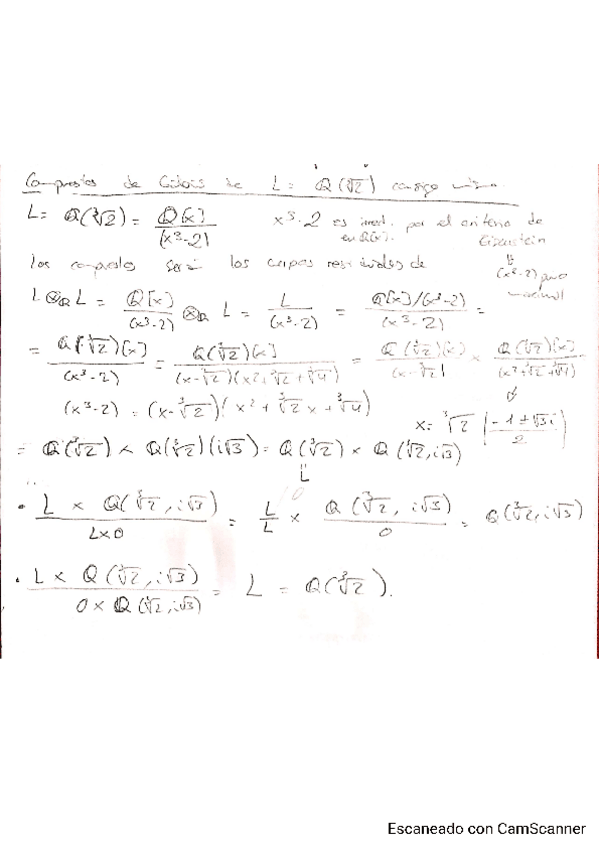 Compuestos de Galois de L = Q(∛2) consigo mismo
L = Q(∛2) = Q[x]/(x³-2) x³-2 es irred. por el criterio de Eisenstein en Q[x]. ⇓
Los compuestos será los cuerpos residuales de (x³-2) maximal
L ⊗Q L = Q[x]/(x³-2) ⊗Q L = L/(x³-2) = Q[x]/(x³-2)/(x³-2) =
= Q(∛2)[x]/(x³-2) = Q(∛2)[x]/(x-∛2)(x²+∛2+∛4) = Q(∛2)[x]/(x-∛2) × Q(∛2)[x]/(x²+∛2+∛4)
(x³-2) = (x-∛2)(x²+∛2x+∛4) x = ∛2 (-1±√3i/2)
= Q(∛2) × Q(∛2)(i√3) = Q(∛2) × Q(∛2,i√3)
L
• L × Q(∛2,i√3)/L×0 = L/L × Q(∛2,i√3)/0 = Q(∛2,i√3)
• L × Q(∛2,i√3)/0 × Q(∛2,i√3) = L = Q(∛2).
Escaneado con CamScanner